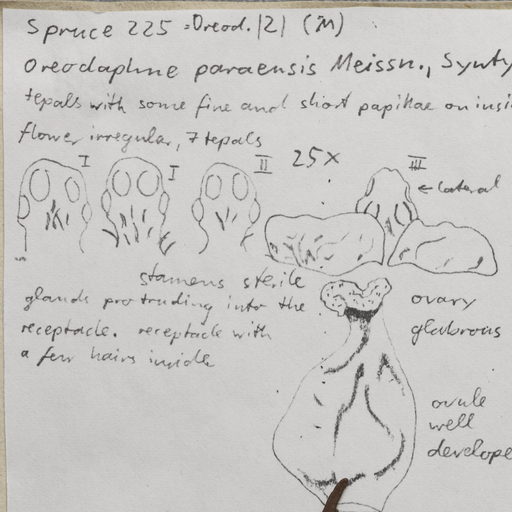 Spruce 225 = Oreod. |2| (M)
Oreodaphne paraensis Meissn., Synty
tepals with some fine and short papillae on insi
flower irregular, 7 tepals
I I II 25x III
← lateral
stamens sterile
glands protruding into the
receptacle. receptacle with
a few hairs inside
ovary
glabrous
ovule
well
develope